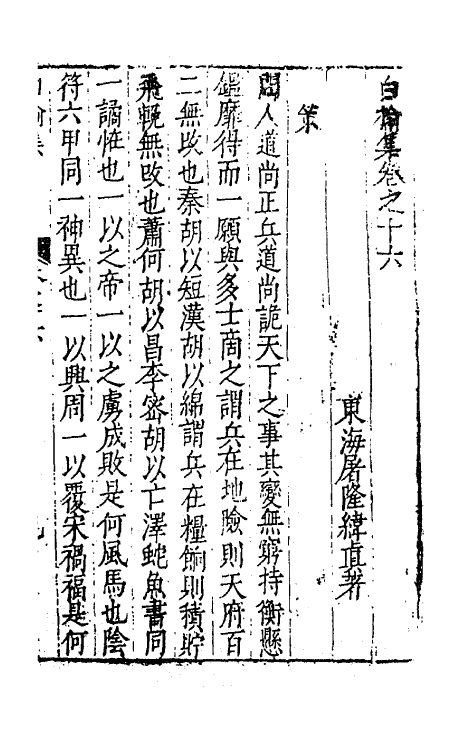 白榆集卷之十六
東海屠隆緯真著
策
問人道尚正兵道尚詭天下之事其變無窮持衡懸
鑑靡得而一願與多士商之謂兵在地險則天府百
二無改也秦胡以短漢胡以綿謂兵在糧餉則積貯
飛輓無改也蕭何胡以昌李密胡以亡澤蛇魚書同
一譎恠也一以之帝一以之虜成敗是何風馬也陰
符六甲同一神異也一以興周一以覆宋禍福是何
白榆集